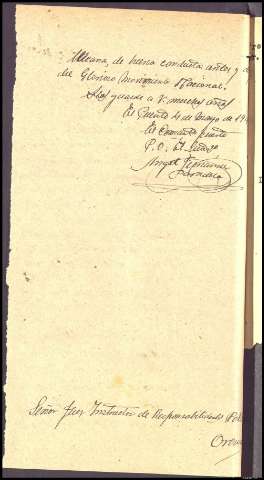 de buena conducta antes y
del Glorioso Movimiento Nacional.
Dios guarde a V. muchos años
El Puente 4 de Mayo de 19
El Comandante puesto
P. O. El Guardia
Angel
Señor Juez Instructor de Responsabilidades